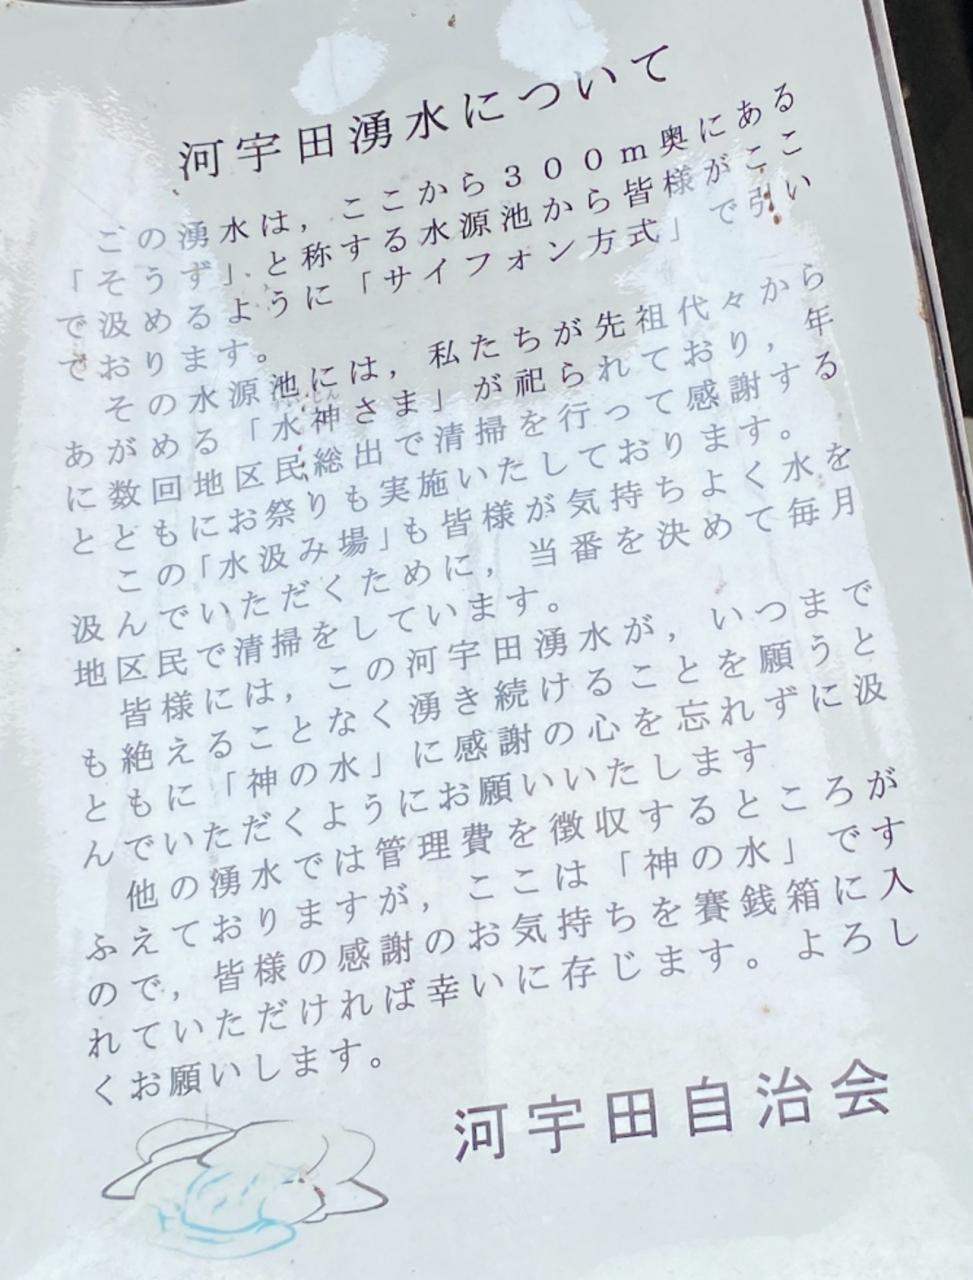 河宇田湧水について
この湧水は，ここから３００ｍ奥にある
「そうず」と称する水源池から皆様がここ
で汲めるように「サイフォン方式」で引い
ております。
その水源池には，私たちが先祖代々から
あがめる「水神さま」が祀られており，年
に数回地区民総出で清掃を行って感謝する
とともにお祭りも実施いたしております。
この「水汲み場」も皆様が気持ちよく水を
汲んでいただくために，当番を決めて毎月
地区民で清掃をしています。
皆様には，この河宇田湧水が，いつまで
も絶えることなく湧き続けることを願うと
ともに「神の水」に感謝の心を忘れずに汲
んでいただくようにお願いいたします
他の湧水では管理費を徴収するところが
ふえておりますが，ここは「神の水」です
ので，皆様の感謝のお気持ちを賽銭箱に入
れていただければ幸いに存じます。よろし
くお願いします。
河宇田自治会